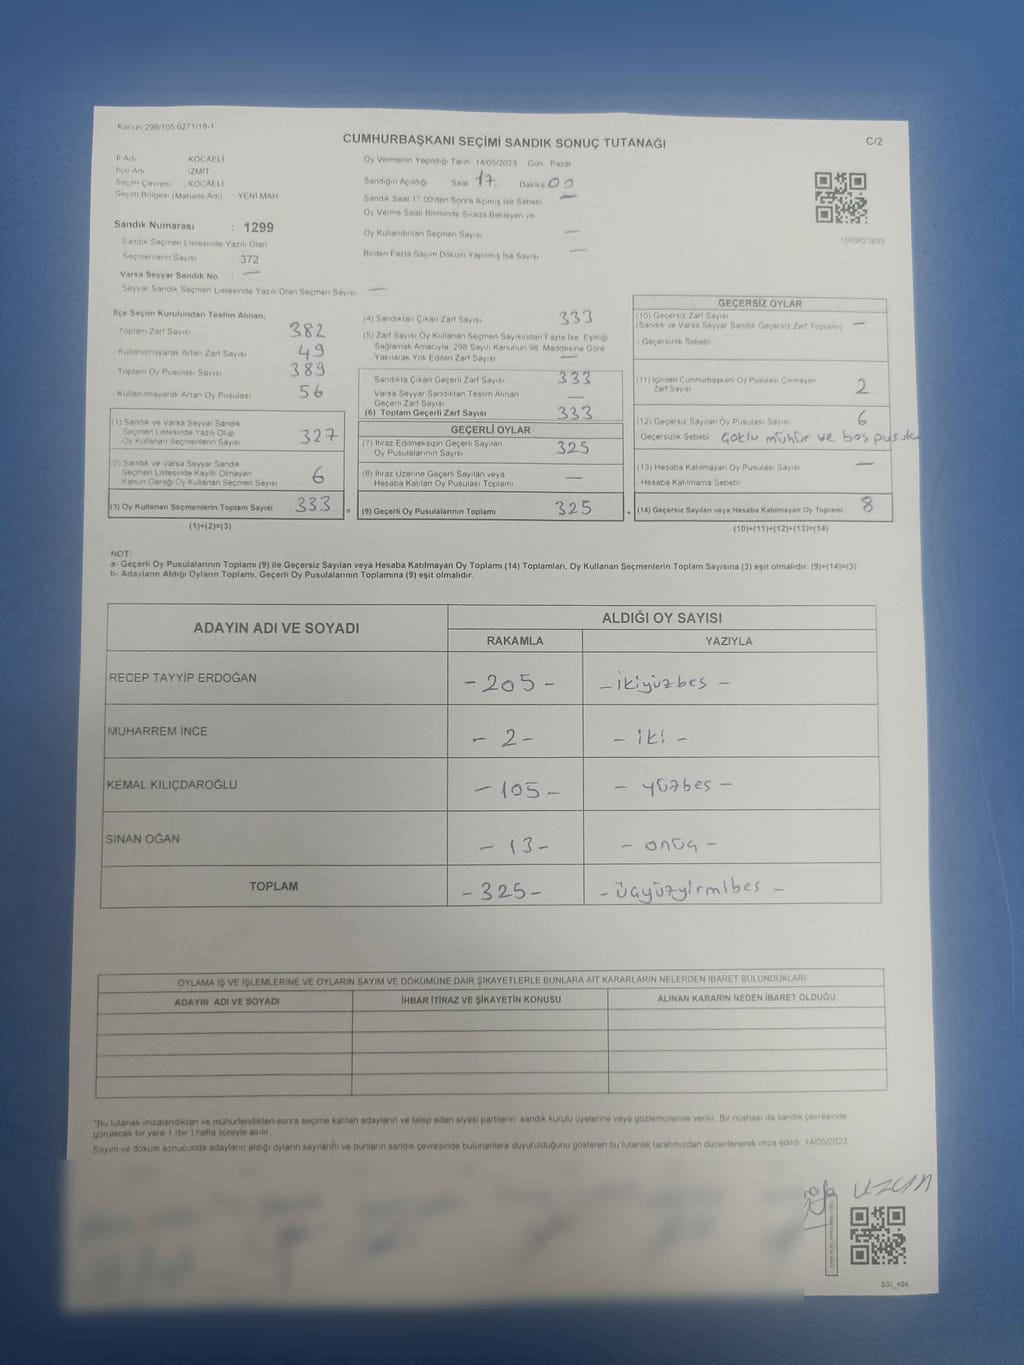 Kanun 298/105 6271/18-1
CUMHURBAŞKANI SEÇİMİ SANDIK SONUÇ TUTANAĞI
C/2
İl Adı KOCAELİ
İlçe Adı İZMİT
Seçim Çevresi : KOCAELİ
Seçim Bölgesi (Mahalle Adı) YENİ MAH
Sandık Numarası : 1299
- Sandık Seçmen Listesinde Yazılı Olan
Seçmenlerin Sayısı : 372
Varsa Seyyar Sandık No : —
Seyyar Sandık Seçmen Listesinde Yazılı Olan Seçmen Sayısı —
Oy Vermenin Yapıldığı Tarih 14/05/2023 Gün Pazar
Sandığın Açıldığı Saat 17. Dakika 00
Sandık Saat 17.00'den Sonra Açımış İse Sebebi —
Oy Verme Saati Bitiminde Sırada Bekleyen ve
Oy Kullandırılan Seçmen Sayısı —
Birden Fazla Sayım Döküm Yapılmış İse Sayısı —
1093823833
İlçe Seçim Kurulundan Teslim Alınan;
- Toplam Zarf Sayısı 382
- Kullanılmayarak Artan Zarf Sayısı 49
- Toplam Oy Pusulası Sayısı 389
- Kullanılmayarak Artan Oy Pusulası 56
(1) Sandık ve Varsa Seyyar Sandık
Seçmen Listesinde Yazılı Olup
Oy Kullanan Seçmenlerin Sayısı 327
(2) Sandık ve Varsa Seyyar Sandık
Seçmen Listesinde Kayıtlı Olmayan
Kanun Gereği Oy Kullanan Seçmen Sayısı 6
(3) Oy Kullanan Seçmenlerin Toplam Sayısı 333 =
(1)+(2)=(3)
(4) Sandıktan Çıkan Zarf Sayısı 333
(5) Zarf Sayısı Oy Kullanan Seçmen Sayısından Fazla İse, Eşitliği
Sağlamak Amacıyla, 298 Sayılı Kanunun 98. Maddesine Göre
Yakılarak Yok Edilen Zarf Sayısı —
Sandıkta Çıkan Geçerli Zarf Sayısı 333
Varsa Seyyar Sandıktan Teslim Alınan
Geçerli Zarf Sayısı —
(6) Toplam Geçerli Zarf Sayısı 333
GEÇERLİ OYLAR
(7) İtiraz Edilmeksizin Geçerli Sayılan
Oy Pusulalarının Sayısı 325
(8) İtiraz Üzerine Geçerli Sayılan veya
Hesaba Katılan Oy Pusulası Toplamı —
(9) Geçerli Oy Pusulalarının Toplamı 325 +
GEÇERSİZ OYLAR
(10) Geçersiz Zarf Sayısı
(Sandık ve Varsa Seyyar Sandık Geçersiz Zarf Toplamı) —
- Geçersizlik Sebebi
(11) İçinden Cumhurbaşkanı Oy Pusulası Çıkmayan
Zarf Sayısı 2
(12) Geçersiz Sayılan Oy Pusulası Sayısı 6
- Geçersizlik Sebebi Çoklu mühür ve boş pusula
(13) Hesaba Katılmayan Oy Pusulası Sayısı —
- Hesaba Katılmama Sebebi
(14) Geçersiz Sayılan veya Hesaba Katılmayan Oy Toplamı 8
(10)+(11)+(12)+(13)=(14)
NOT:
a- Geçerli Oy Pusulalarının Toplamı (9) ile Geçersiz Sayılan veya Hesaba Katılmayan Oy Toplamı (14) Toplamları, Oy Kullanan Seçmenlerin Toplam Sayısına (3) eşit olmalıdır. (9)+(14)=(3)
b- Adayların Aldığı Oyların Toplamı, Geçerli Oy Pusulalarının Toplamına (9) eşit olmalıdır.
ADAYIN ADI VE SOYADI
ALDIĞI OY SAYISI
RAKAMLA YAZIYLA
RECEP TAYYİP ERDOĞAN - 205 - - ikiyüzbeş -
MUHARREM İNCE - 2 - - iki -
KEMAL KILIÇDAROĞLU - 105 - - yüzbeş -
SİNAN OĞAN - 13 - - onüç -
TOPLAM - 325 - - üçyüzyirmibeş -
OYLAMA İŞ VE İŞLEMLERİNE VE OYLARIN SAYIM VE DÖKÜMÜNE DAİR ŞİKAYETLERLE BUNLARA AİT KARARLARIN NELERDEN İBARET BULUNDUKLARI
ADAYIN ADI VE SOYADI İHBAR İTİRAZ VE ŞİKAYETİN KONUSU ALINAN KARARIN NEDEN İBARET OLDUĞU
*Bu tutanak imzalandıktan ve mühürlendikten sonra seçime katılan adayların ve talep eden siyasi partilerin sandık kurulu üyelerine veya gözlemcilerine verilir. Bir nüshası da sandık çevresinde
görülecek bir yere 1 (bir) hafta süreyle asılır.
Sayım ve döküm sonucunda adayların aldığı oyların sayılarını ve bunların sandık çevresinde bulunanlara duyurulduğunu gösteren bu tutanak tarafımızdan düzenlenerek imza edildi. 14/05/2023
uzun
SSI_404